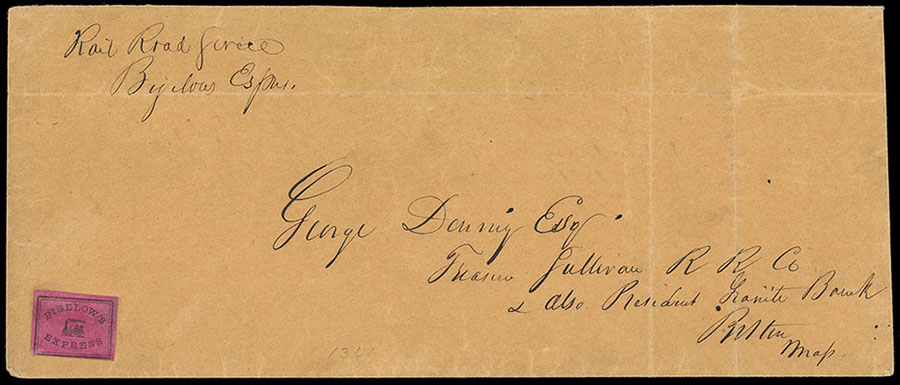 Rail Road Service
Bigelows Express.
George Denny Esqr
Treasr Sullivan R R Co
& also President Granite Bank
Boston
Mass.
BIGELOW'S
EXPRESS